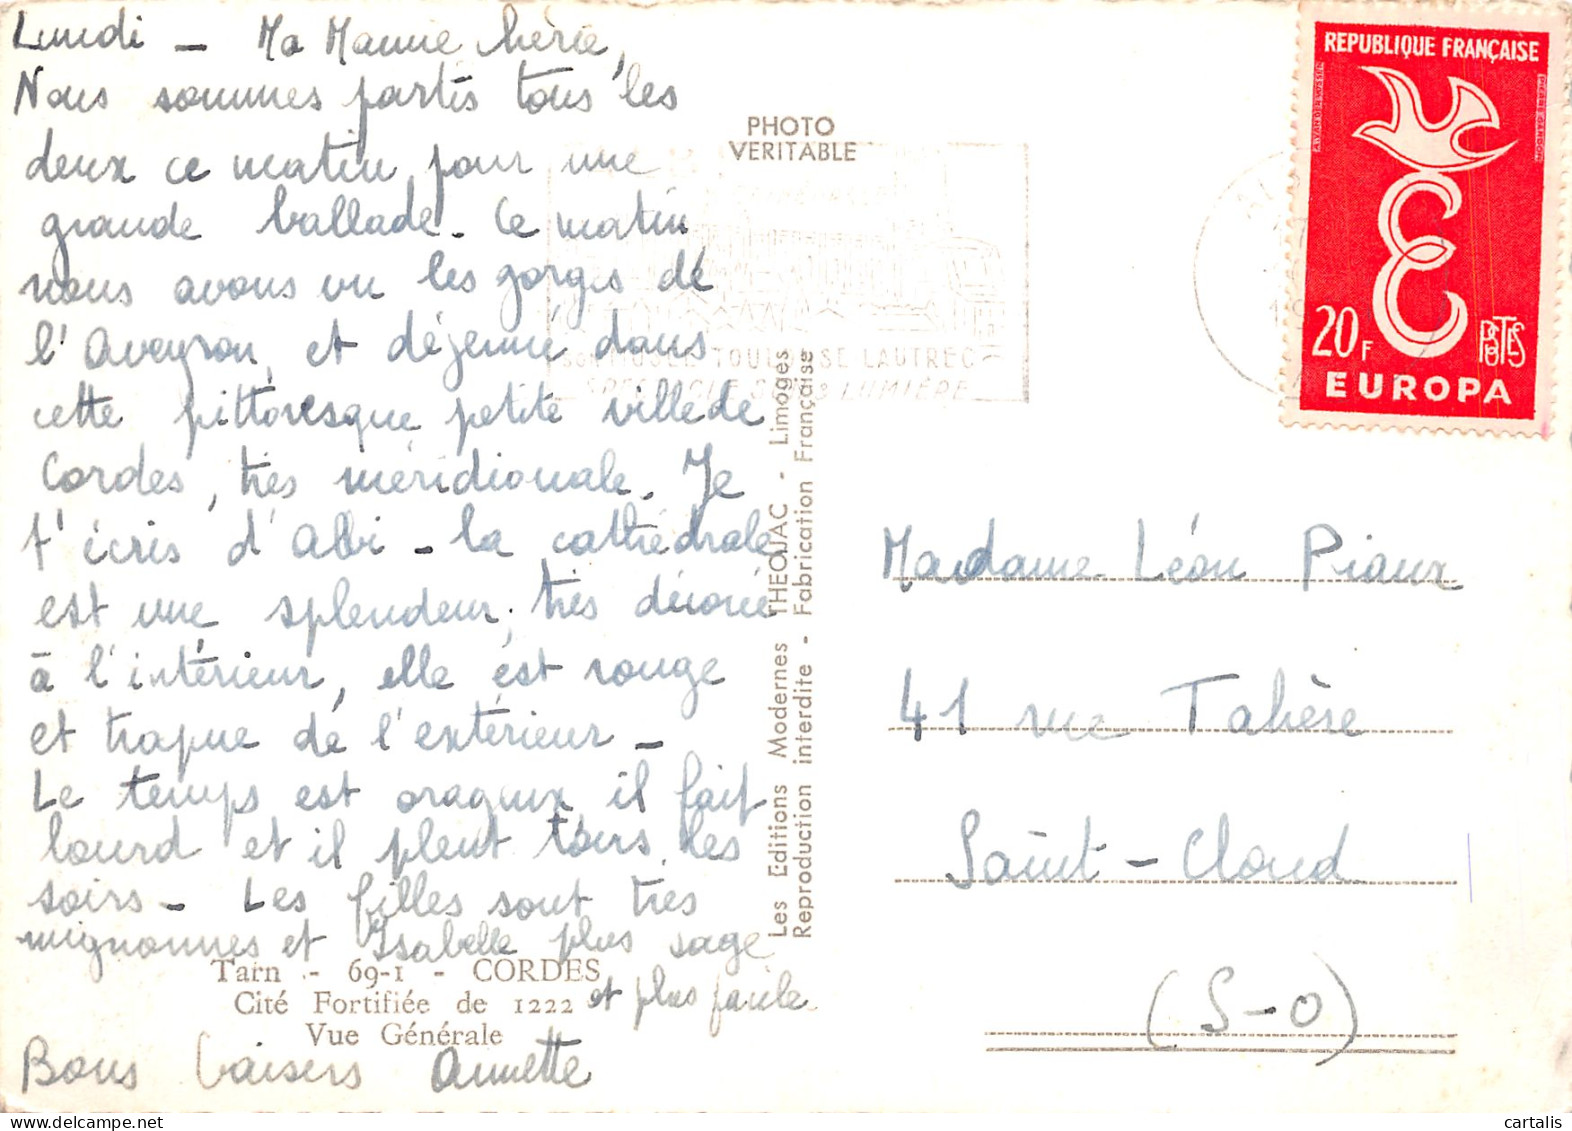 Lundi - Ma Mamie chérie,
Nous sommes partis tous les
deux ce matin, pour une
grande ballade. Ce matin
nous avons vu les gorges de
l'Aveyron, et déjeuné dans
cette pittoresque petite ville de
Cordes, très méridionale. Je
t'écris d'Albi - la cathédrale
est une splendeur, très décorée
à l'intérieur, elle est rouge
et trapue de l'extérieur -
Le temps est orageux, il fait
lourd et il pleut tous les
soirs - Les filles sont très
mignonnes et Isabelle plus sage
et plus facile
Bons baisers Annette
Tarn - 69-1 - CORDES
Cité Fortifiée de 1222
Vue Générale
PHOTO
VERITABLE
son MUSÉE TOULOUSE LAUTREC
SPECTACLE SON & LUMIÈRE
Les Editions Modernes THEOJAC - Limoges
Reproduction interdite - Fabrication Française
REPUBLIQUE FRANÇAISE
A.VAN DER VOSSEN
PIERRE GANDON
20F
POSTES
EUROPA
Madame Léon Piaux
41 rue Tahère
Saint-Cloud
(S-O)
cartalis